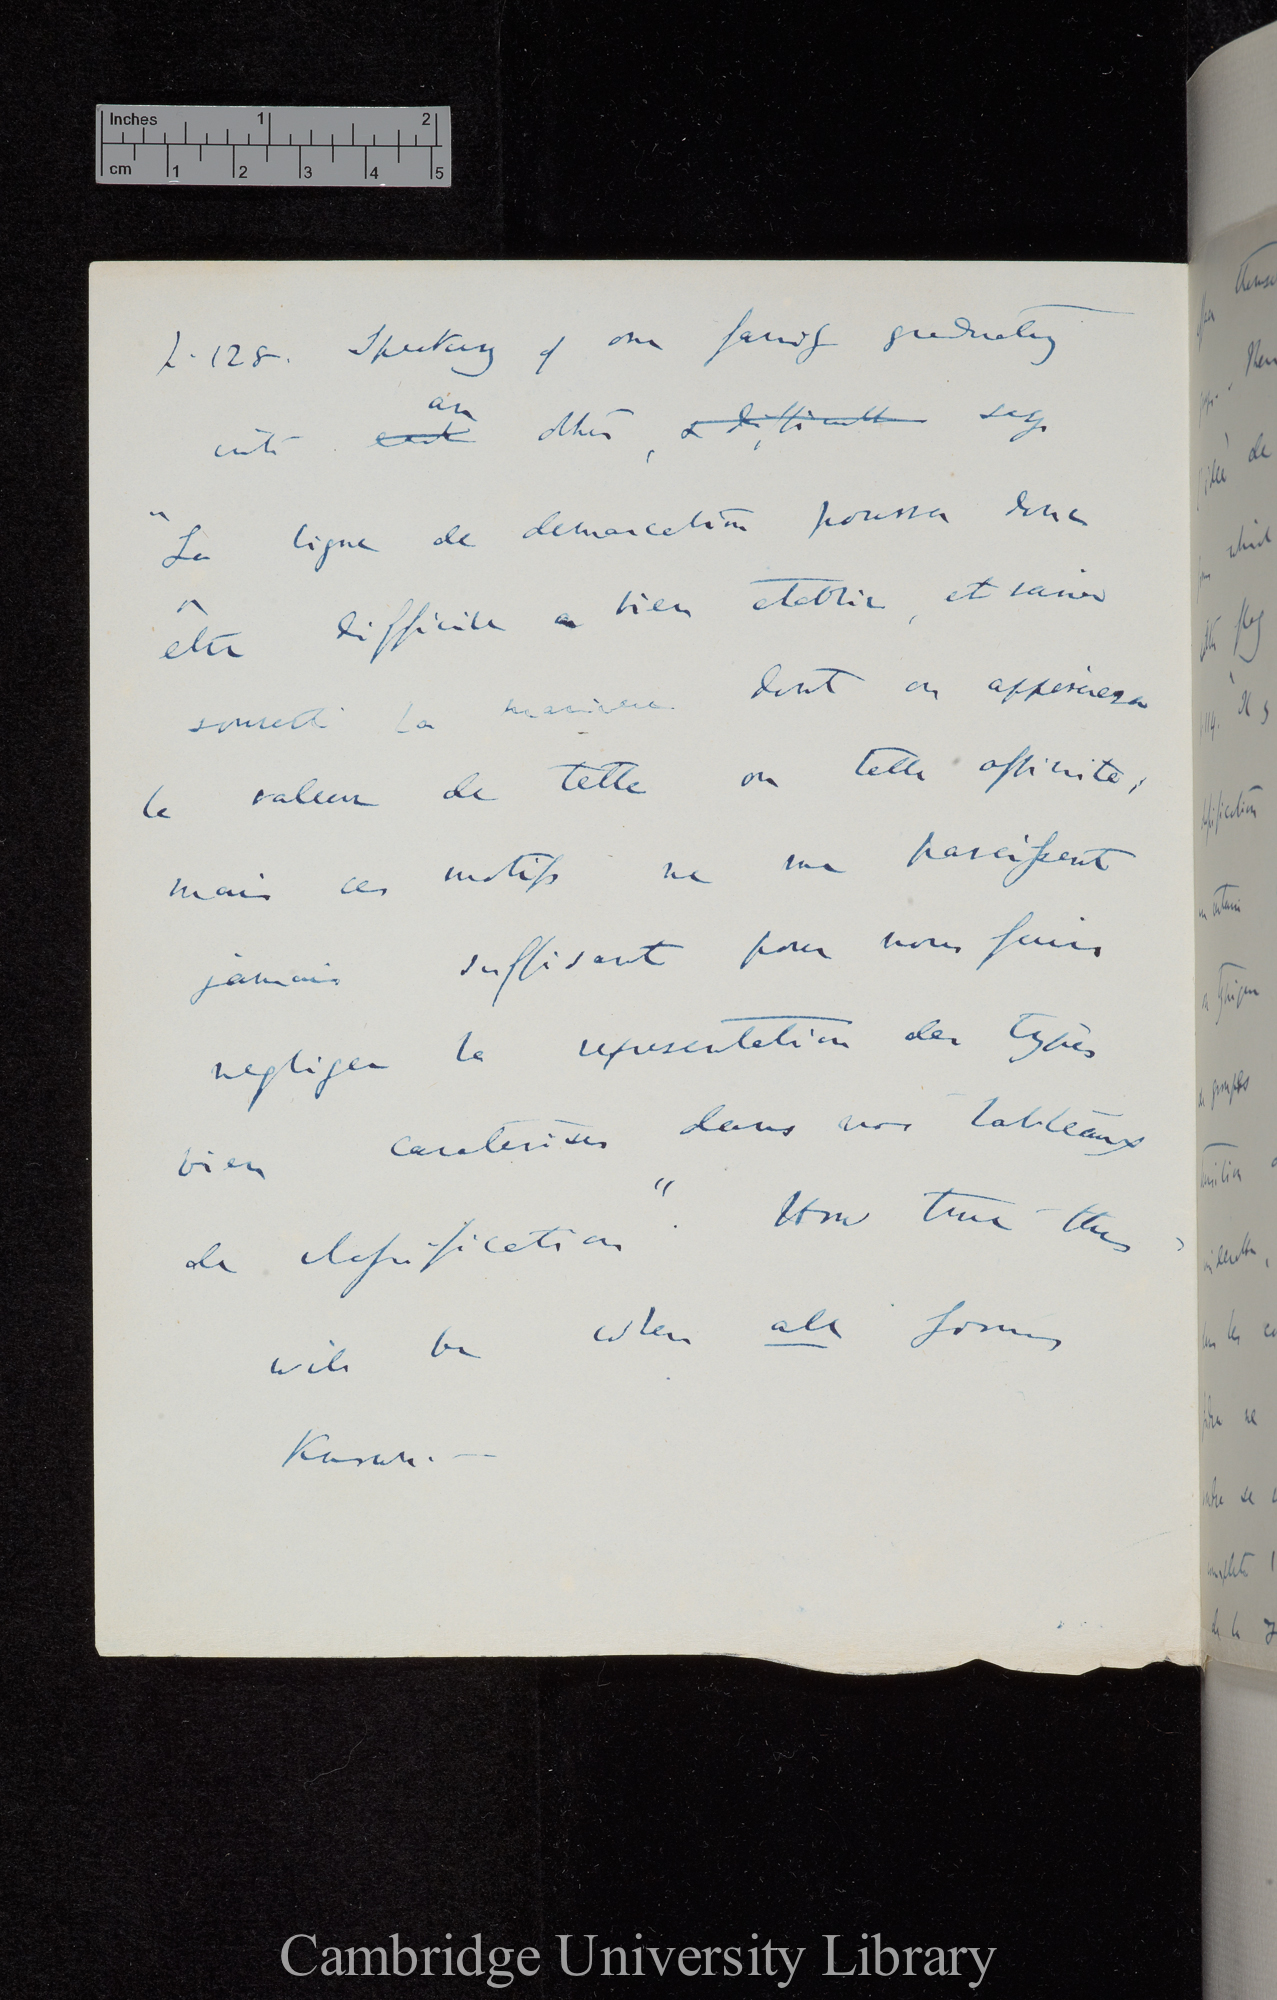 Inches 1 2
cm 1 2 3 4 5
p. 128. Speaking of one family graduating
an
into each other, & difficult says
"La ligne de demarcation poussa donc
être difficile a bien etablir, et varier
la maniere dont on appreciera
la valeur de telle ou telle affinité;
mais ces motifs ne me paraissent
jamais suffisant pour nous faire
negliger la representation des types
bien caraterises dans nos tableaux
de classification". How true this
will be when all forms
known. —
Cambridge University Library